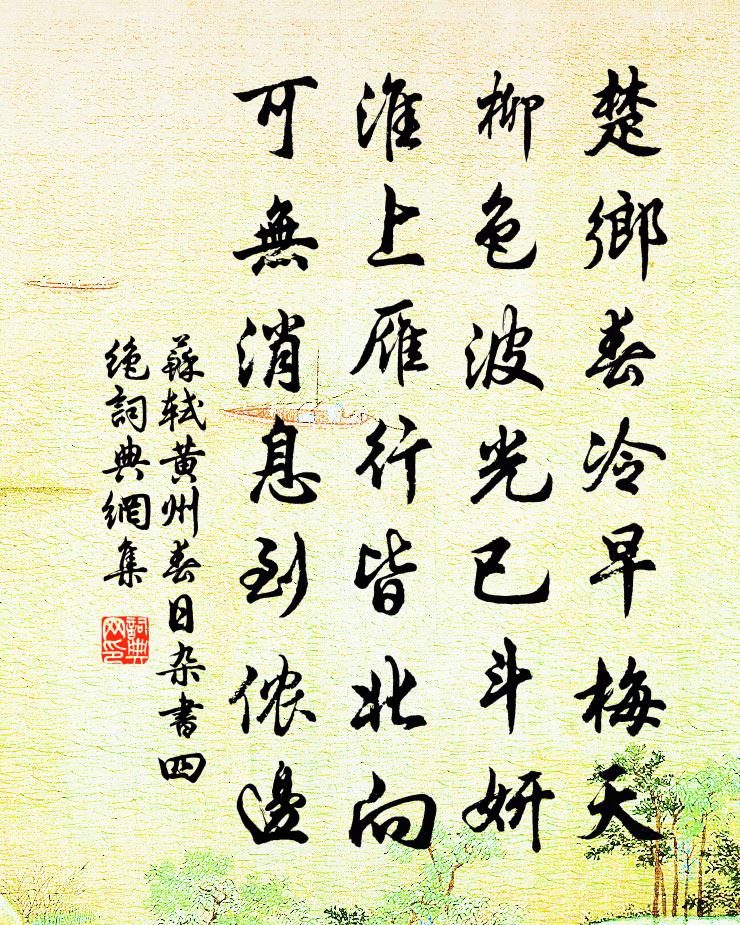 楚鄉春冷早梅天
柳色波光已斗妍
淮上雁行皆北向
可無消息到儂邊
蘇軾黄州春日杂書四
绝詞典網集
詞典
网印